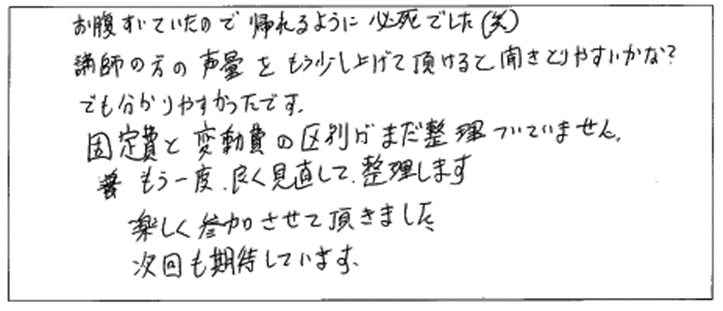 お腹すいていたので帰れるように必死でした(笑)
講師の方の声量をもう少し上げて頂けると聞きとりやすいかな?
でも分かりやすかったです。
固定費と変動費の区別がまだ整理ついていません。
もう一度、良く見直して、整理します
楽しく参加させて頂きました
次回も期待しています。